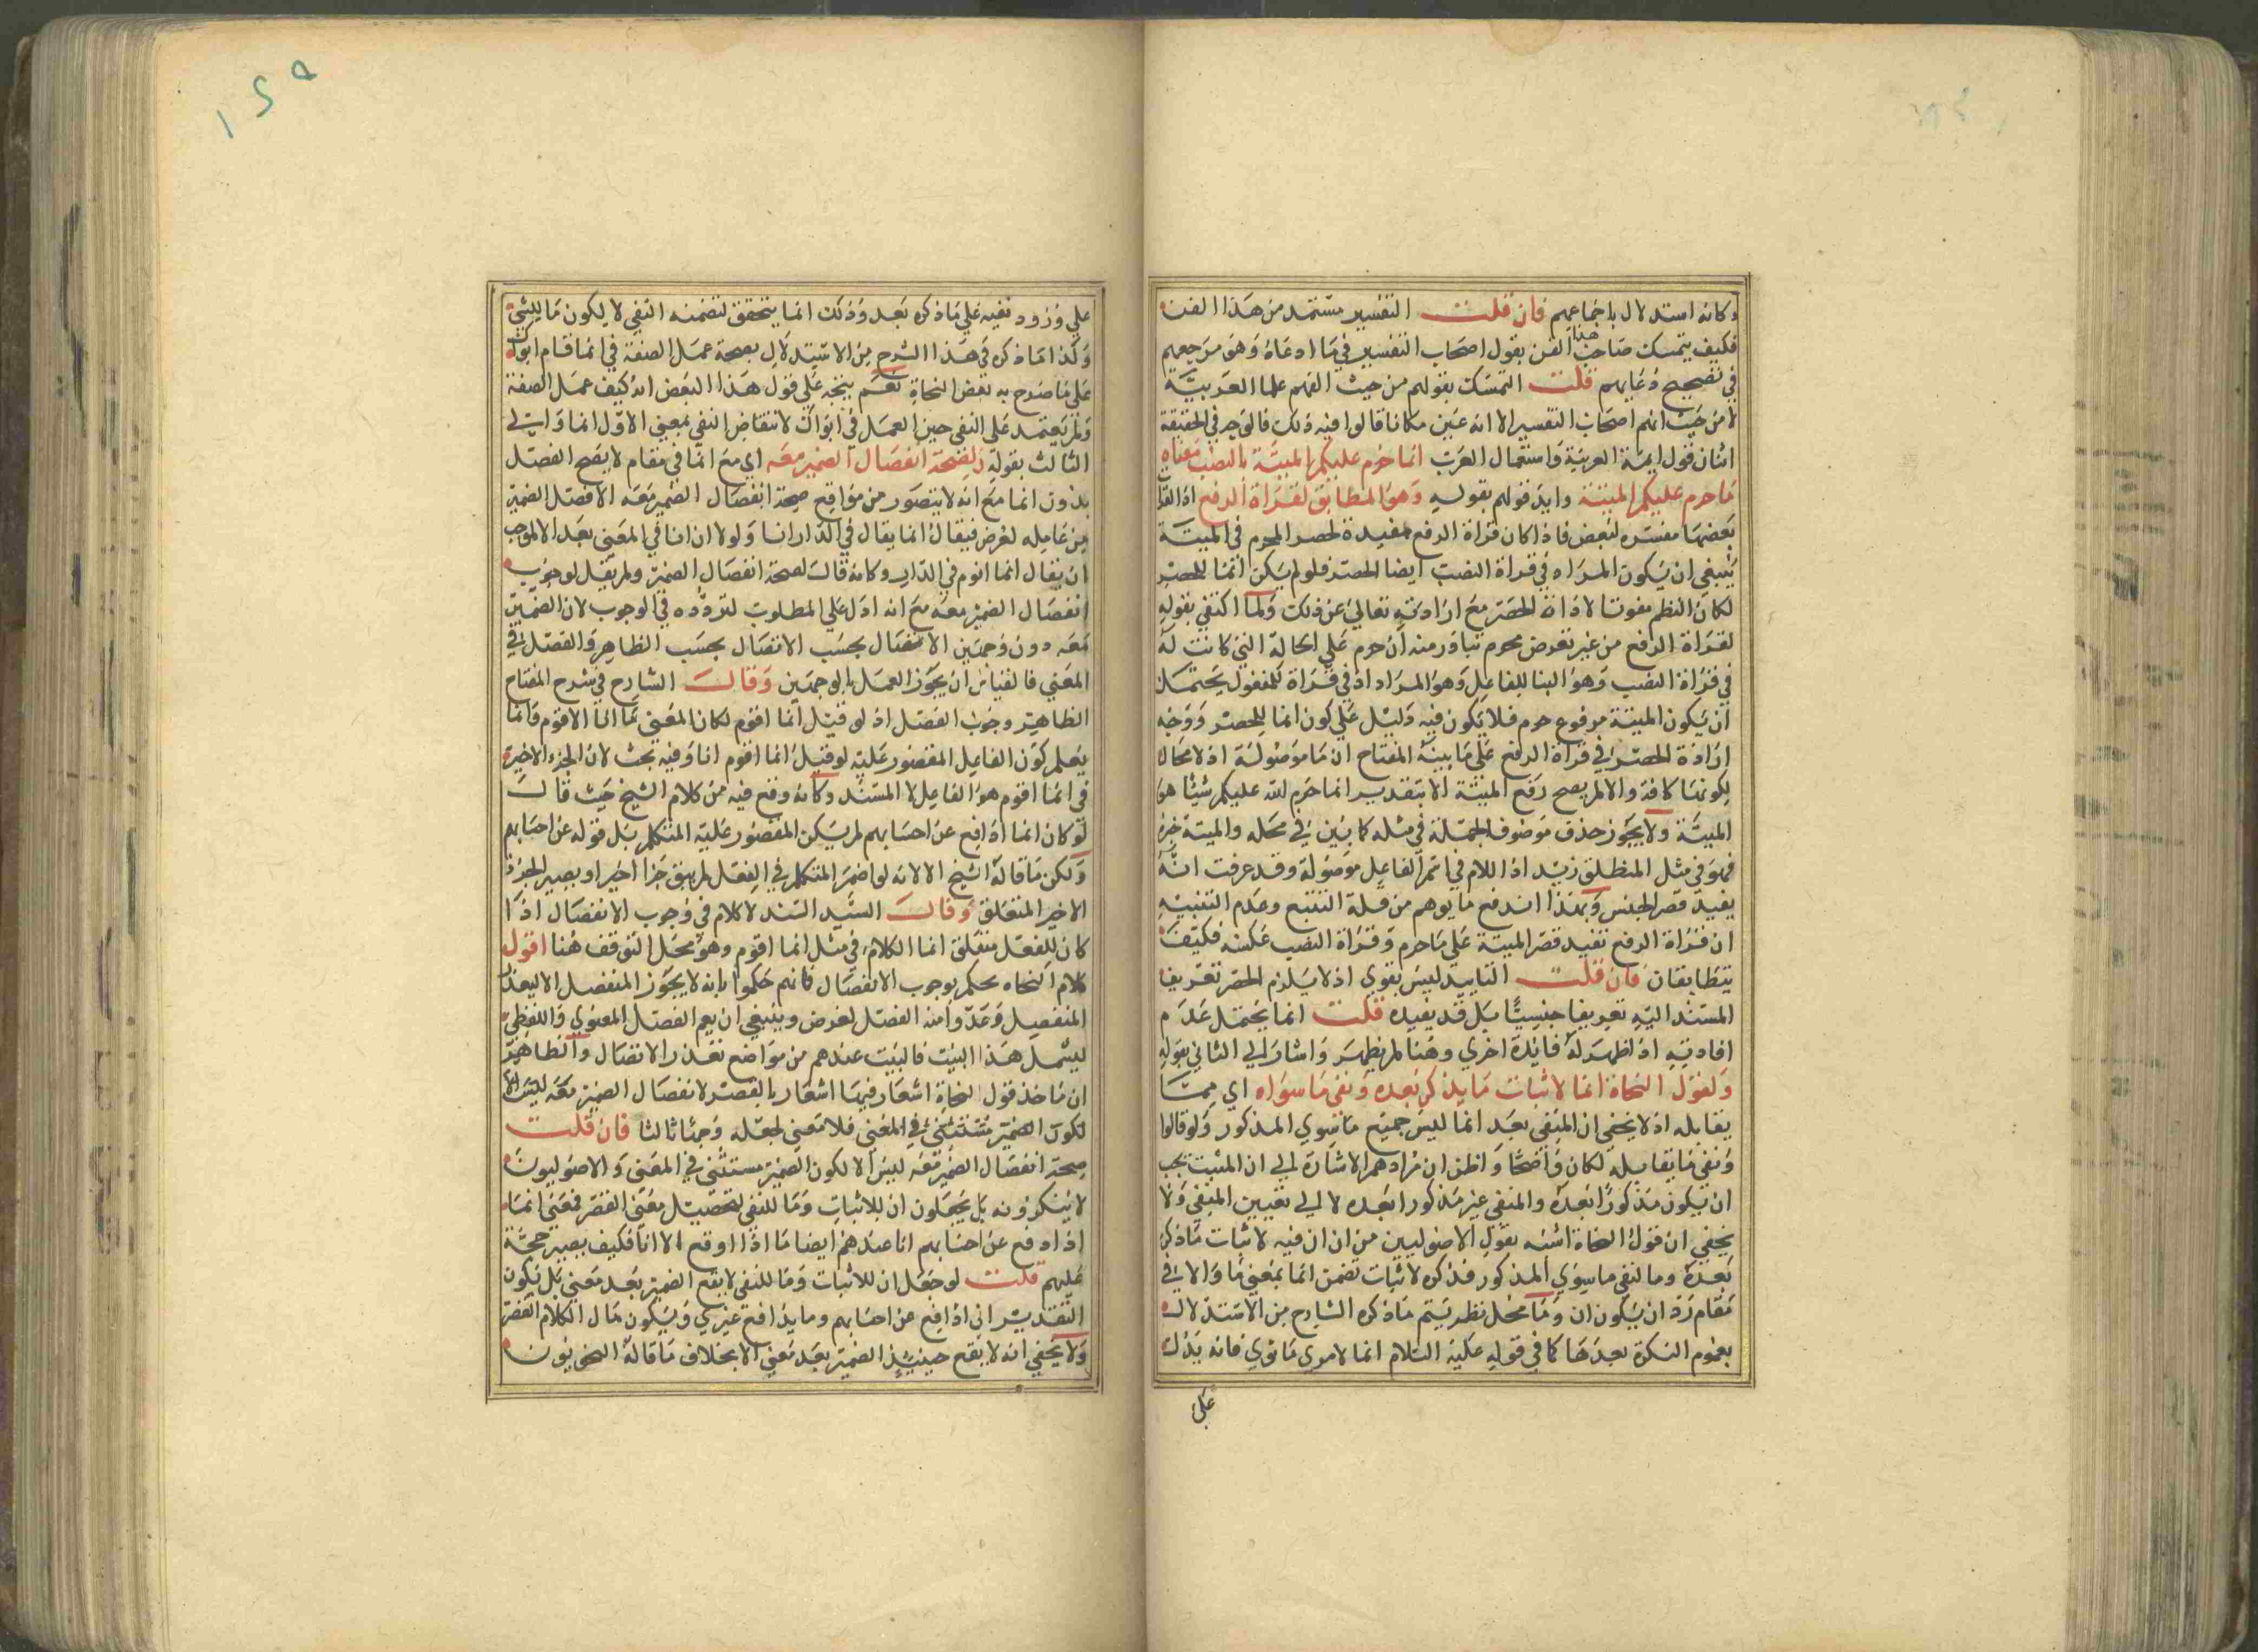 وكانه استدلال باجماعهم فان قلت التفسير مستمد من هذا الفن
فكيف يتمسك صاحب هذا الفن بقول اصحاب التفسير في ما ادعاه وهو مرجعهم
في تصحيح دعايهم قلت التمسك بقولهم من حيث انهم علما العربية
لا من حيث انهم اصحاب التفسير الا انه عين مكانا قالوا فيه ذلك فالوجه في الحقيقة
اثنان قول ايمة العربية واستعمال العرب انما حرم عليكم الميتة بالنصب معناه
ما حرم عليكم الا الميتة وايد قولهم بقوله وهو المطابق لقراة الرفع اذ القرا
بعضها مفسره لبعض فاذا كان قراة الرفع مفيدة لحصر المحرم في الميتة
ينبغي ان يكون المراد في قراة النصب ايضا الحصر فلو لم يكن انما للحصر
لكان النظم مفوتا لافادة الحصر مع ارادته تعالى عن ذلك ولما اكتفي بقوله
لقراة الرفع من غير تعرض محرم تبادر منه ان حرم علي الحالة التي كانت له
في قراة النصب وهو البنا للفاعل وهو المراد اذ في قراة للمفعول يحتمل
ان يكون الميتة مرفوع حرم فلا يكون فيه دليل علي كون انما للحصر ووجه
ارادة الحصر في قراة الرفع علي ما بينه المفتاح ان ما موصولة اذ لا مجال
لكونها كافة والا لم يصح رفع الميتة الا بتقدير انما حرم الله عليكم شيئا هو
الميتة ولا يجوز حذف موصوف الجملة في مثله كما بين في محله والميتة خبره
فهو في مثل المنطلق زيد اذ اللام في اسم الفاعل موصولة وقد عرفت انه
يفيد قصر الجنس وبهذا اندفع ما يوهم من قلة التتبع وعدم التنبيه
ان قراة الرفع تفيد قصر الميتة علي ما حرم وقراة النصب عكسه فكيف
يتطابقان فان قلت التاييد ليس بقوي اذ لا يلزم الحصر تعريف
المسند اليه تعريفا جنسيا بل قد يفيده قلت انما يحتمل عدم
افادته اذ اظهر له فايدة اخري وهنا لم يظهر واشار الي الثاني بقوله
ولقول النحاة انما لاثبات ما يذكر بعده ونفي ما سواه اي مما
يقابله اذ لا يخفي ان المنفي بعد انما ليس جميع ما سوي المذكور ولو قالوا
ونفي ما يقابله لكان واضحا واظن ان مرادهم الاشارة الي ان المثبت يجب
ان يكون مذكورا بعده والمنفي غير مذكور بعده لا الي تعيين المنفي ولا
يخفي ان قول النحاة اشبه بقول الاصوليين من ان ان فيه لاثبات ما ذكر
بعده وما لنفي ما سوي المذكور فذكره لاثبات تضمن انما بمعني ما والا في
مقام رد ان يكون ان وما محل نظر يتم ما ذكره الشارح من الاستدلال
بعموم النكرة بعدها كما في قوله عليه السلام انما لامري ما نوي فانه يدل
علي
علي ورود نفيه علي ما ذكره بعد وذلك انما يتحقق لتضمنه النفي لا لكون ما للنفي
وكذا ما ذكره في هذا الشرح من الاستدلال بصحة عمل الصفة في انما قام ابواك
علي ما صرح به بعض النحاة نعم يتجه علي قول هذا البعض انه كيف عمل الصفة
ولم يعتمد علي النفي حين العمل في ابواك لانتقاض النفي بمعني الا وانما واشار الي
الثالث بقوله ولصحة انفصال الضمير معه اي مع انما في مقام لا يصح الفصل
بدون انما مع انه لا يتصور من مواقع صحة انفصال الضمير معه الا فصل الضمير
من عامله لغرض فيقال انما يقال في الدار انا ولولا ان انا في المعني بعد الا لوجب
ان يقال انما اقوم في الدار وكانه قال لصحة انفصال الضمير ولم يقل لوجوب
انفصال الضمير معه مع انه ادل علي المطلوب لتردده في الوجوب لان الضمير
معه دون وجهين الانفصال بحسب الاتصال بحسب الظاهر والفصل في
المعني فالقياس ان يجوز العمل بالوجهين وقال الشارح في شرح المفتاح
الظاهر وجوب الفصل اذ لو قيل انما اقوم لكان المعني ما انا الا اقوم فانما
يعلم كون الفاعل المقصور عليه لو قيل انما اقوم انا وفيه بحث لان الجزء الاخير
في انما اقوم هو الفاعل لا المسند وكانه وقع فيه من كلام الشيخ حيث قال
لو كان انما ادافع عن احسابهم لم يكن المقصور عليه المتكلم بل قوله عن احسابهم
ولكن ما قاله الشيخ الا لانه لو اضمر المتكلم في الفعل لم يبق جزا اخيرا ويصير الجزء
الاخير المتعلق وقال السيد السند لا كلام في وجوب الانفصال اذا
كان للفعل متعلق انما الكلام في مثل انما اقوم وهو محل التوقف هنا اقول
كلام النحاه يحكم بوجوب الانفصال فانهم حكموا بانه لا يجوز المنفصل الا لتعذر
المتصل وعدوا منه الفصل لغرض وينبغي ان يعم الفصل المعنوي واللفظي
ليشمل هذا البيت فالبيت عندهم من مواضع تعذر الاتصال والظاهر
ان ماخذ قول النحاة اشعار فيها اشعار بالقصر لانفصال الضمير معه ليس الا
لكون الضمير مستثني في المعني فلا معني لجعله وجها ثالثا فان قلت
صحة انفصال الضمير معه ليس الا لكون الضمير مستثني في المعني والاصوليون
لا ينكرونه بل يجعلون ان للاثبات وما للنفي لتحصيل معني القصر فمعني انما
اذ ادفع عن احسابهم انا عندهم ايضا ما اذا اوقع الا انا فكيف يصير حجة
عليهم قلت لو جعل ان للاثبات وما للنفي لا يقع الضمير بعد معني بل يكون
التقدير اني ادافع عن احسابهم وما يدافع غيري ويكون مال الكلام القصر
ولا يخفي انه لا يقع حينيذ الضمير بعد معني الا بخلاف ما قاله النحويون